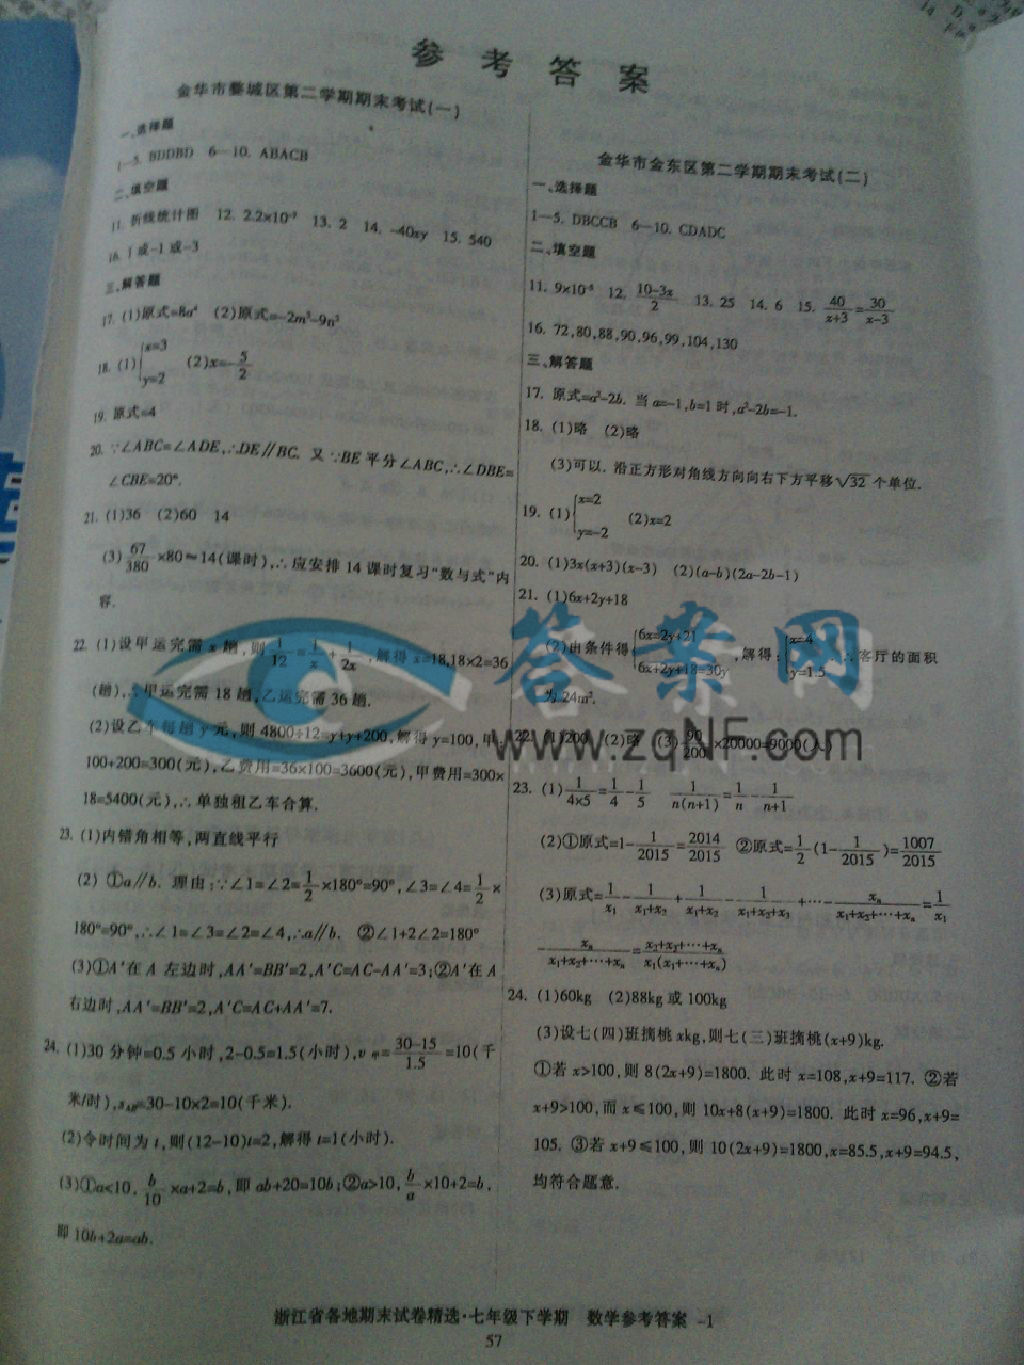 参考答案
金华市婺城区第二学期期末考试(一)
一、选择题
1—5. BDDBD 6—10. ABACB
二、填空题
11. 折线统计图 12. 2.2×10⁻⁹ 13. 2 14. -40xy 15. 540
16. 1或-1或-3
三、解答题
17. (1)原式=8a⁴ (2)原式=-2m³-9n²
18. (1){x=3 y=2 (2)x=-5/2
19. 原式=4
20. ∵∠ABC=∠ADE,∴DE∥BC. 又∵BE平分∠ABC,∴∠DBE=
∠CBE=20°.
21. (1)36 (2)60 14
(3)67/380×80≈14(课时),∴应安排14课时复习“数与式”内
容.
22. (1)设甲运完需x趟,则1/12=1/x+1/2x,解得x=18,18×2=36
(趟),∴甲运完需18趟,乙运完需36趟.
(2)设乙车每趟y元,则4800÷12=y+y+200,解得y=100,甲:
100+200=300(元),乙费用=36×100=3600(元),甲费用=300×
18=5400(元),∴单独租乙车合算.
23. (1)内错角相等,两直线平行
(2) ①a∥b. 理由:∵∠1=∠2=1/2×180°=90°,∠3=∠4=1/2×
180°=90°,∴∠1=∠3=∠2=∠4,∴a∥b. ②∠1+2∠2=180°
(3)①A′在A左边时,AA′=BB′=2,A′C=AC-AA′=3;②A′在A
右边时,AA′=BB′=2,A′C=AC+AA′=7.
24. (1)30分钟=0.5小时,2-0.5=1.5(小时),v甲=30-15/1.5=10(千
米/时),sAB=30-10×2=10(千米).
(2)令时间为t,则(12-10)t=2,解得t=1(小时).
(3)①a<10,b/10×a+2=b,即ab+20=10b;②a>10,b/a×10+2=b,
即10b+2a=ab.
金华市金东区第二学期期末考试(二)
一、选择题
1—5. DBCCB 6—10. CDADC
二、填空题
11. 9×10⁻⁵ 12. 10-3x/2 13. 25 14. 6 15. 40/x+3=30/x-3
16. 72,80,88,90,96,99,104,130
三、解答题
17. 原式=a²-2b. 当a=-1,b=1时,a²-2b=-1.
18. (1)略 (2)略
(3)可以. 沿正方形对角线方向向右下方平移√32个单位.
19. (1){x=2 y=-2 (2)x=2
20. (1)3x(x+3)(x-3) (2)(a-b)(2a-2b-1)
21. (1)6x+2y+18
(2)由条件得{6x=2y+21 6x+2y+18=30y,解得:{x=4 y=1.5 ∴客厅的面积
为24m².
22. (1)200 (2)略 (3)90/200×20000=9000(人)
23. (1)1/4×5=1/4-1/5 1/n(n+1)=1/n-1/n+1
(2)①原式=1-1/2015=2014/2015 ②原式=1/2(1-1/2015)=1007/2015
(3)原式=1/x₁-1/x₁+x₂+1/x₁+x₂-1/x₁+x₂+x₃+…-xₙ/x₁+x₂+…+xₙ=1/x₁
-xₙ/x₁+x₂+…+xₙ=x₂+x₃+…+xₙ/x₁(x₁+…+xₙ)
24. (1)60kg (2)88kg或100kg
(3)设七(四)班摘桃xkg,则七(三)班摘桃(x+9)kg.
①若x>100,则8(2x+9)=1800. 此时x=108,x+9=117. ②若
x+9>100,而x≤100,则10x+8(x+9)=1800. 此时x=96,x+9=
105. ③若x+9≤100,则10(2x+9)=1800,x=85.5,x+9=94.5,
均符合题意.
答案网
www.zqNF.com
浙江省各地期末试卷精选·七年级下学期 数学参考答案 -1
57